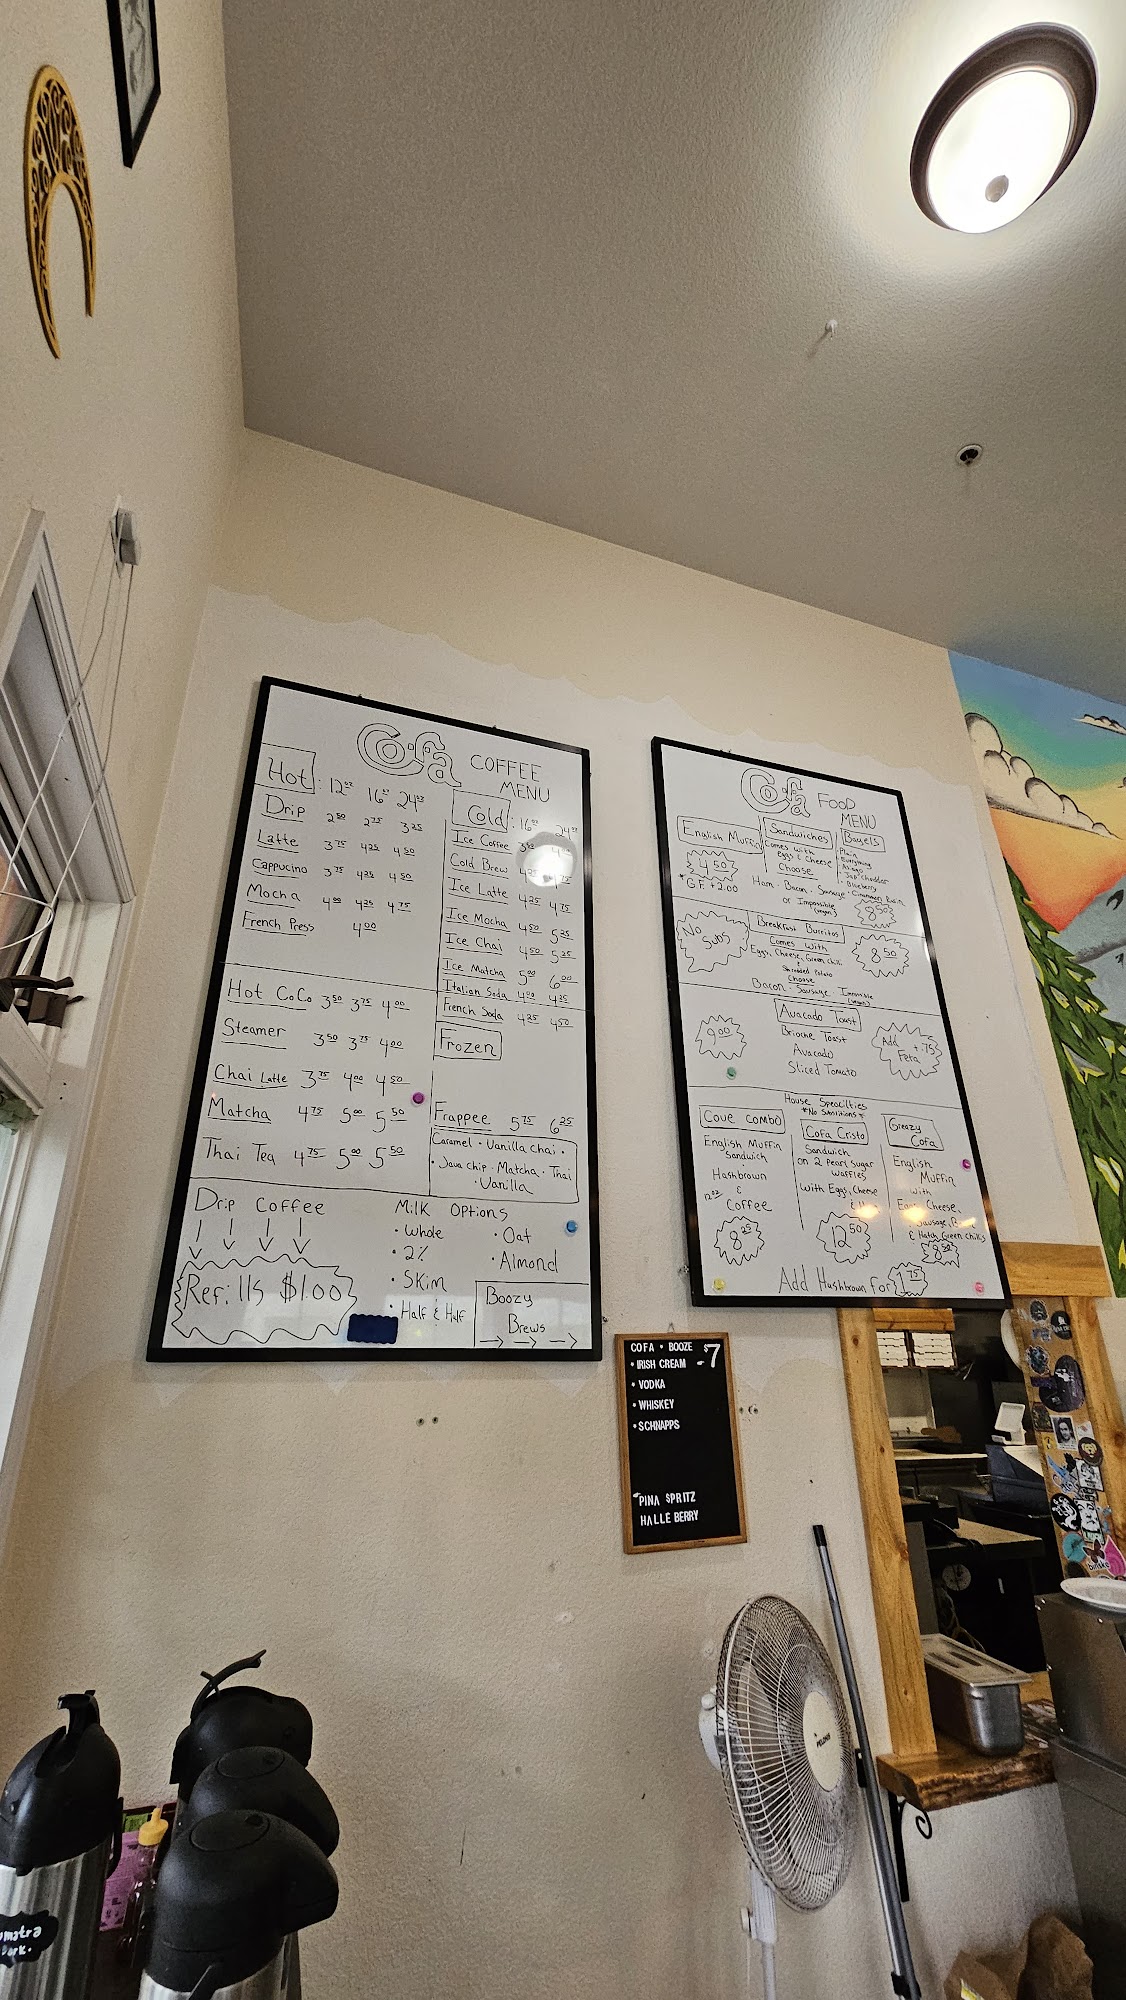 Cofa COFFEE
MENU
Hot: 12oz 16oz 24oz
Drip 2.50 2.75 3.25
Latte 3.75 4.25 4.50
Cappucino 3.75 4.25 4.50
Mocha 4.00 4.25 4.75
French Press 4.00
Hot CoCo 3.50 3.75 4.00
Steamer 3.50 3.75 4.00
Chai Latte 3.75 4.00 4.50
Matcha 4.75 5.00 5.50
Thai Tea 4.75 5.00 5.50
Cold: 16oz 24oz
Ice Coffee
Cold Brew
Ice Latte 4.25 4.75
Ice Mocha 4.50 5.25
Ice Chai 4.50 5.25
Ice Matcha 5.00 6.00
Italian Soda 4.00 4.25
French Soda 4.25 4.50
Frozen
Frappee 5.75 6.25
Caramel · Vanilla Chai ·
· Java chip · Matcha · Thai
· Vanilla
Drip Coffee
Refills $1.00
Milk Options
· Whole
· 2%
· Skim
· Half & Half
· Oat
· Almond
Boozy
Brews
Cofa FOOD
MENU
English Muffin
4.50
*G.F. +2.00
Sandwiches
Comes with
Eggs & Cheese
Choose
Ham · Bacon · Sausage
or Impossible
(vegan)
Bagels
Plain
Everything
Asiago
· Jap Cheddar
· Blueberry
· Cinnamon Raisin
8.50
No
Subs
Breakfast Burritos
Comes With
Eggs, Cheese, Green chili
&
Shredded Potato
Choose
Bacon · Sausage · Impossible
(vegan)
8.50
9.00
Avacado Toast
Brioche Toast
Avacado
Sliced Tomato
Add +.75
Feta
House Specilties
*No Substitions*
Cove Combo
English Muffin
Sandwich
·
Hashbrown
&
12oz Coffee
8.25
Cofa Cristo
Sandwich
on 2 Pearl Sugar
Waffles
with Eggs, Cheese
&
12.50
Greazy
Cofa
English
Muffin
with
Cheese,
Sausage,
& Hatch Green Chilis
8.50
Add Hashbrown for 1.75
COFA · BOOZE $7
· IRISH CREAM
· VODKA
· WHISKEY
· SCHNAPPS
PINA SPRITZ
HALLE BERRY
PELONIS